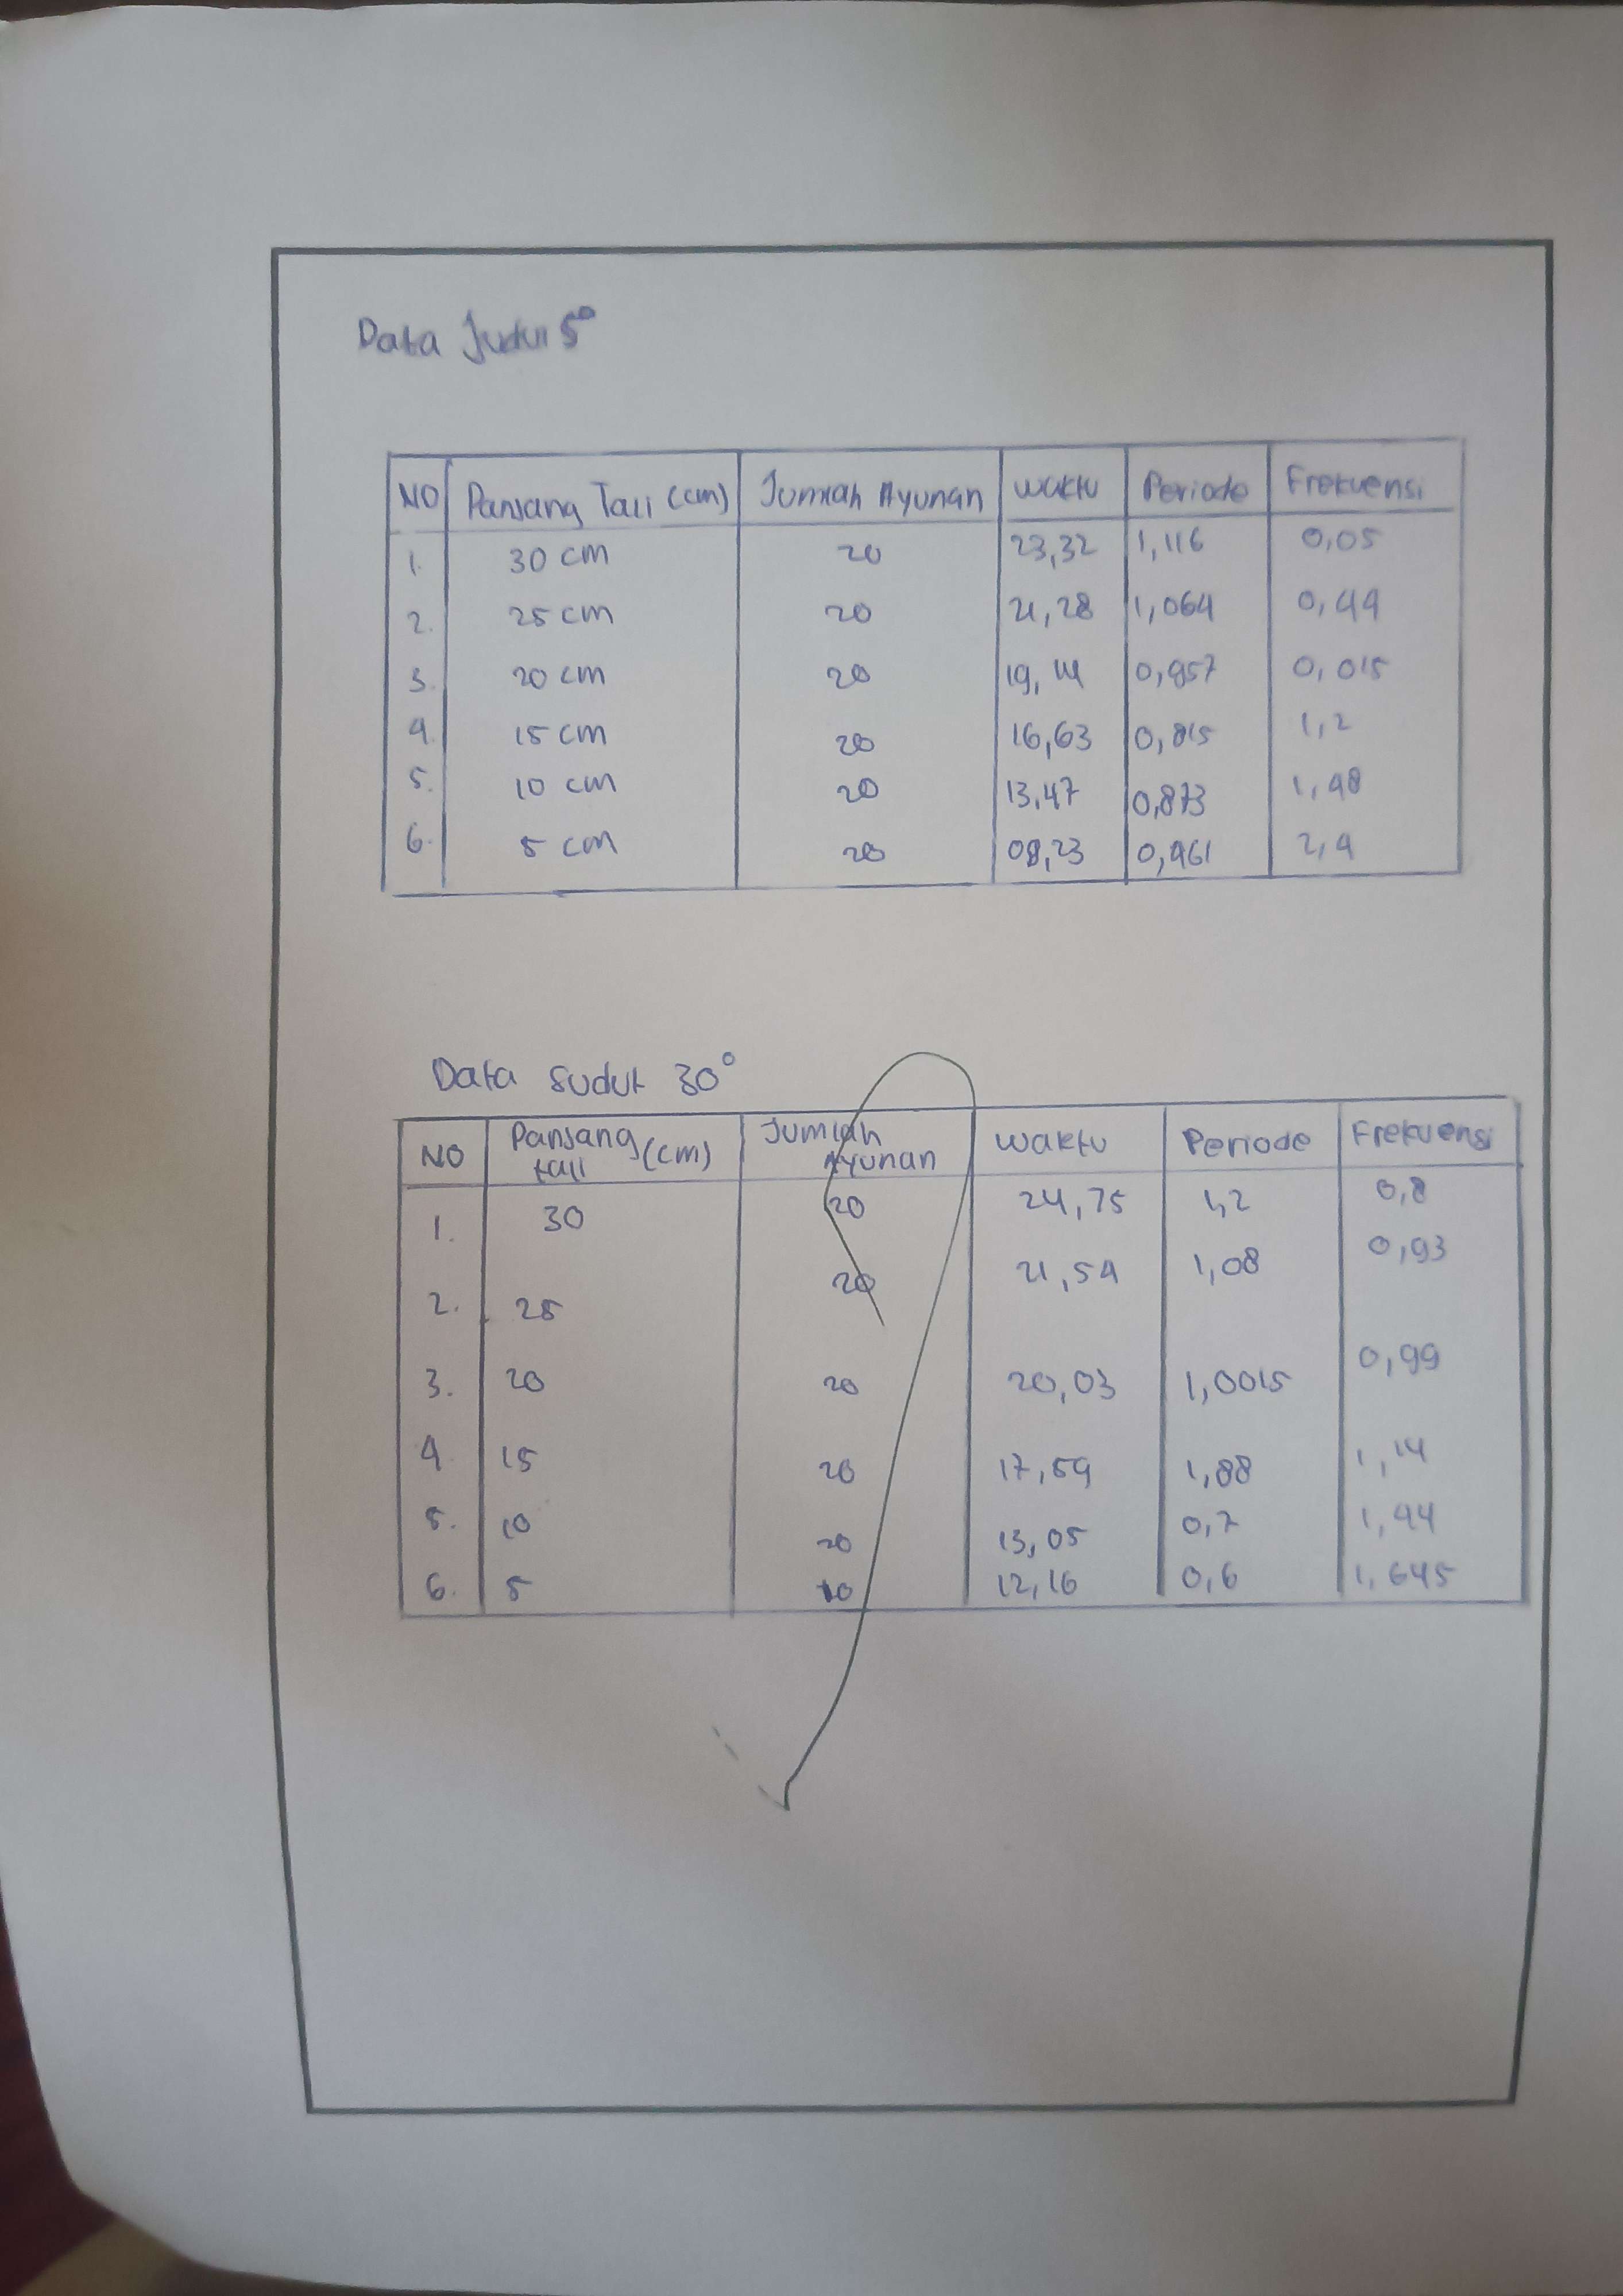 Data Judul 5°
NO Panjang Tali (cm) Jumlah Ayunan Waktu Periode Frekuensi
1. 30 cm 20 23,32 1,116 0,05
2. 25 cm 20 21,28 1,064 0,44
3. 20 cm 20 19,14 0,957 0,015
4. 15 cm 20 16,63 0,815 1,2
5. 10 cm 20 13,47 0,873 1,48
6. 5 cm 20 08,23 0,461 2,4
Data Sudut 30°
NO Panjang tali (cm) Jumlah Ayunan Waktu Periode Frekuensi
1. 30 20 24,75 1,2 0,8
2. 25 20 21,54 1,08 0,93
3. 20 20 20,03 1,0015 0,99
4. 15 20 17,59 1,88 1,14
5. 10 20 13,05 0,7 1,44
6. 5 20 12,16 0,6 1,645